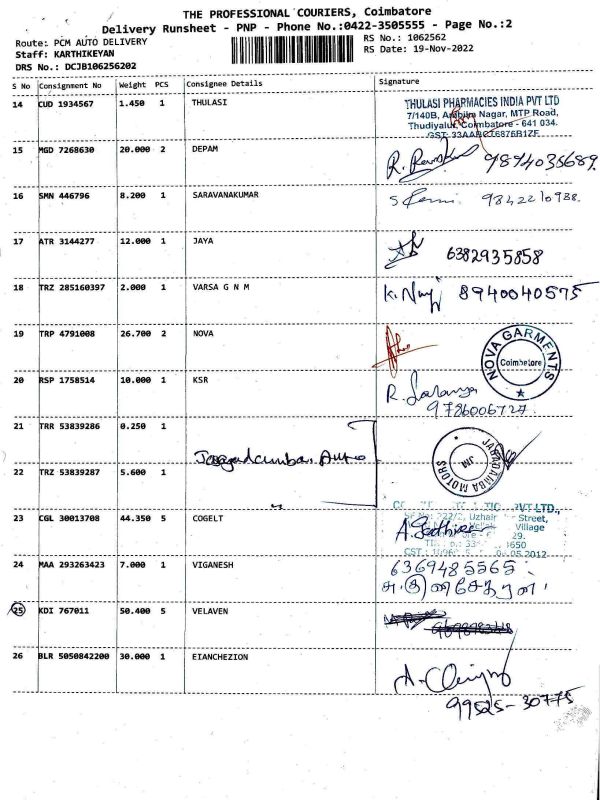 THE PROFESSIONAL COURIERS, Coimbatore
Delivery Runsheet - PNP - Phone No.:0422-3505555 - Page No.:2
Route: PCM AUTO DELIVERY
RS No.: 1062562
Staff: KARTHIKEYAN
RS Date: 19-Nov-2022
DRS No.: DCJB106256202
S No Consignment No Weight PCS Consignee Details Signature
14 CUD 1934567 1.450 1 THULASI
THULASI PHARMACIES INDIA PVT LTD
7/140B, Nagar, MTP Road,
Thudiyalur, Coimbatore - 641 034.
15 MGD 7268630 20.000 2 DEPAM 9894035689
16 SMN 446796 8.200 1 SARAVANAKUMAR
17 ATR 3144277 12.000 1 JAYA 6382935858
18 TRZ 285160397 2.000 1 VARSA G N M 8940040575
19 TRP 4791008 26.700 2 NOVA
NOVA GARMENTS
Coimbatore
20 RSP 1758514 10.000 1 KSR
9786006727
21 TRR 53839286 0.250 1
JAGADAMBA MOTORS
22 TRZ 53839287 5.600 1
23 CGL 30013708 44.350 5 COGELT
PVT LTD.,
Street,
Village
24 MAA 293263423 7.000 1 VIGANESH
6369485565
25 KDI 767011 50.400 5 VELAVEN
26 BLR 5050842200 30.000 1 EIANCHEZION
99525-30775